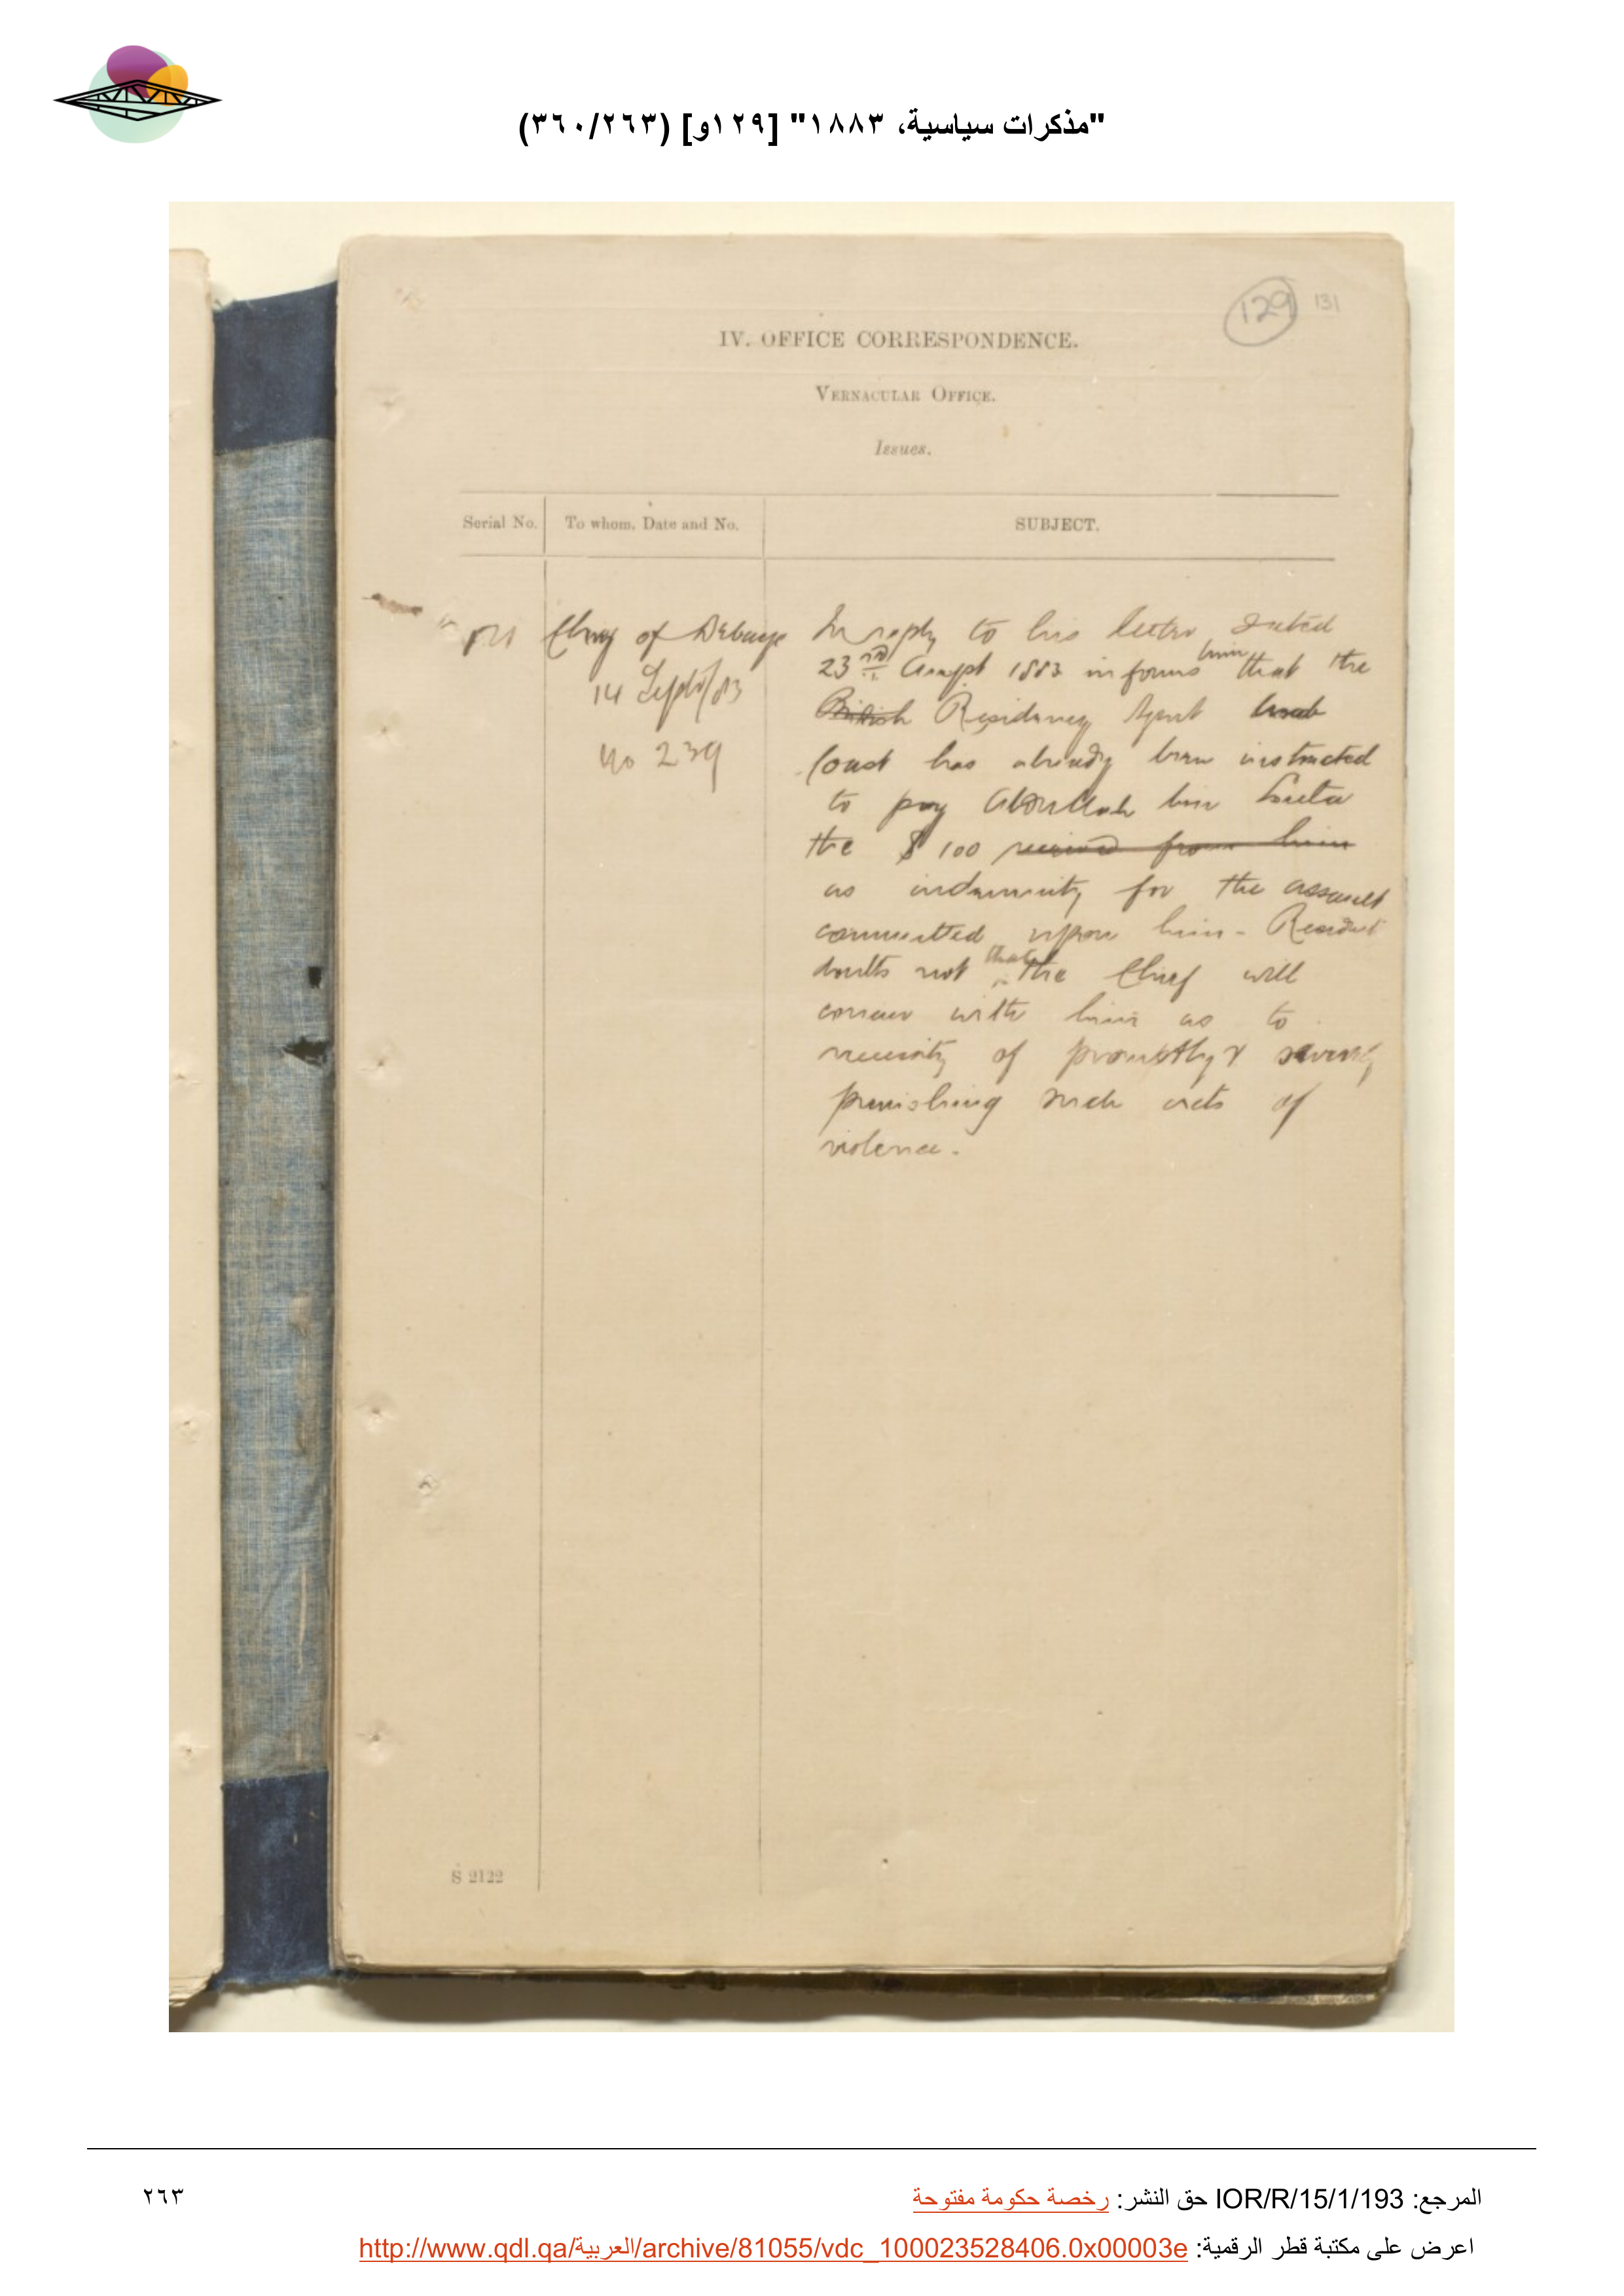 "مذكرات سياسية، ١٨٨٣" [١٢٩و] (٣٦٠/٢٦٣)
129 131
IV. OFFICE CORRESPONDENCE.
VERNACULAR OFFICE.
Issues.
Serial No. To whom, Date and No. SUBJECT.
Chief of Debaye
14 Septr/83
No 239
In reply to his letter dated
23rd August 1883 informs him that the
British Residency Agent Arab
Coast has already been instructed
to pay Abdullah bin
the $ 100 received from him
as indemnity for the assault
committed upon him - Resident
doubts not that the Chief will
concur with him as to
necessity of promptly & severely
punishing such acts of
violence.
S 2122
المرجع: IOR/R/15/1/193 حق النشر: رخصة حكومة مفتوحة
٢٦٣
اعرض على مكتبة قطر الرقمية: http://www.qdl.qa/العربية/archive/81055/vdc_100023528406.0x00003e